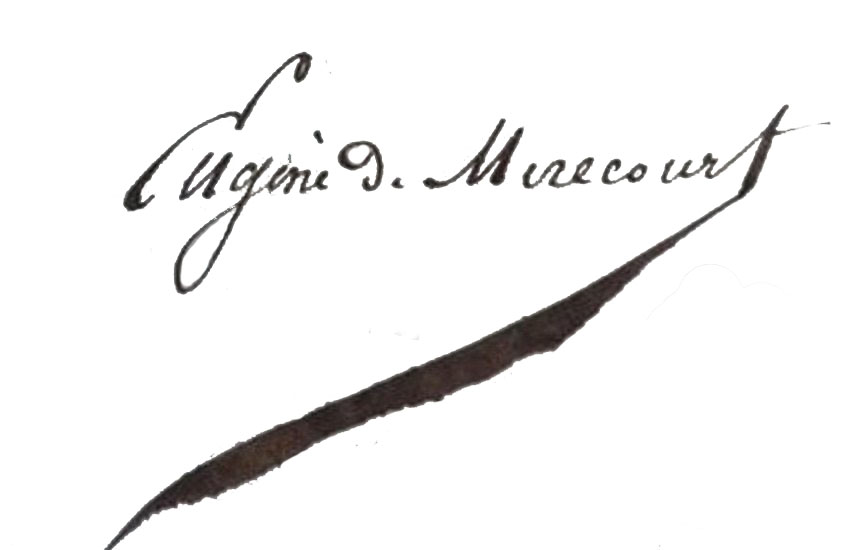 Eugène de Mirecourt